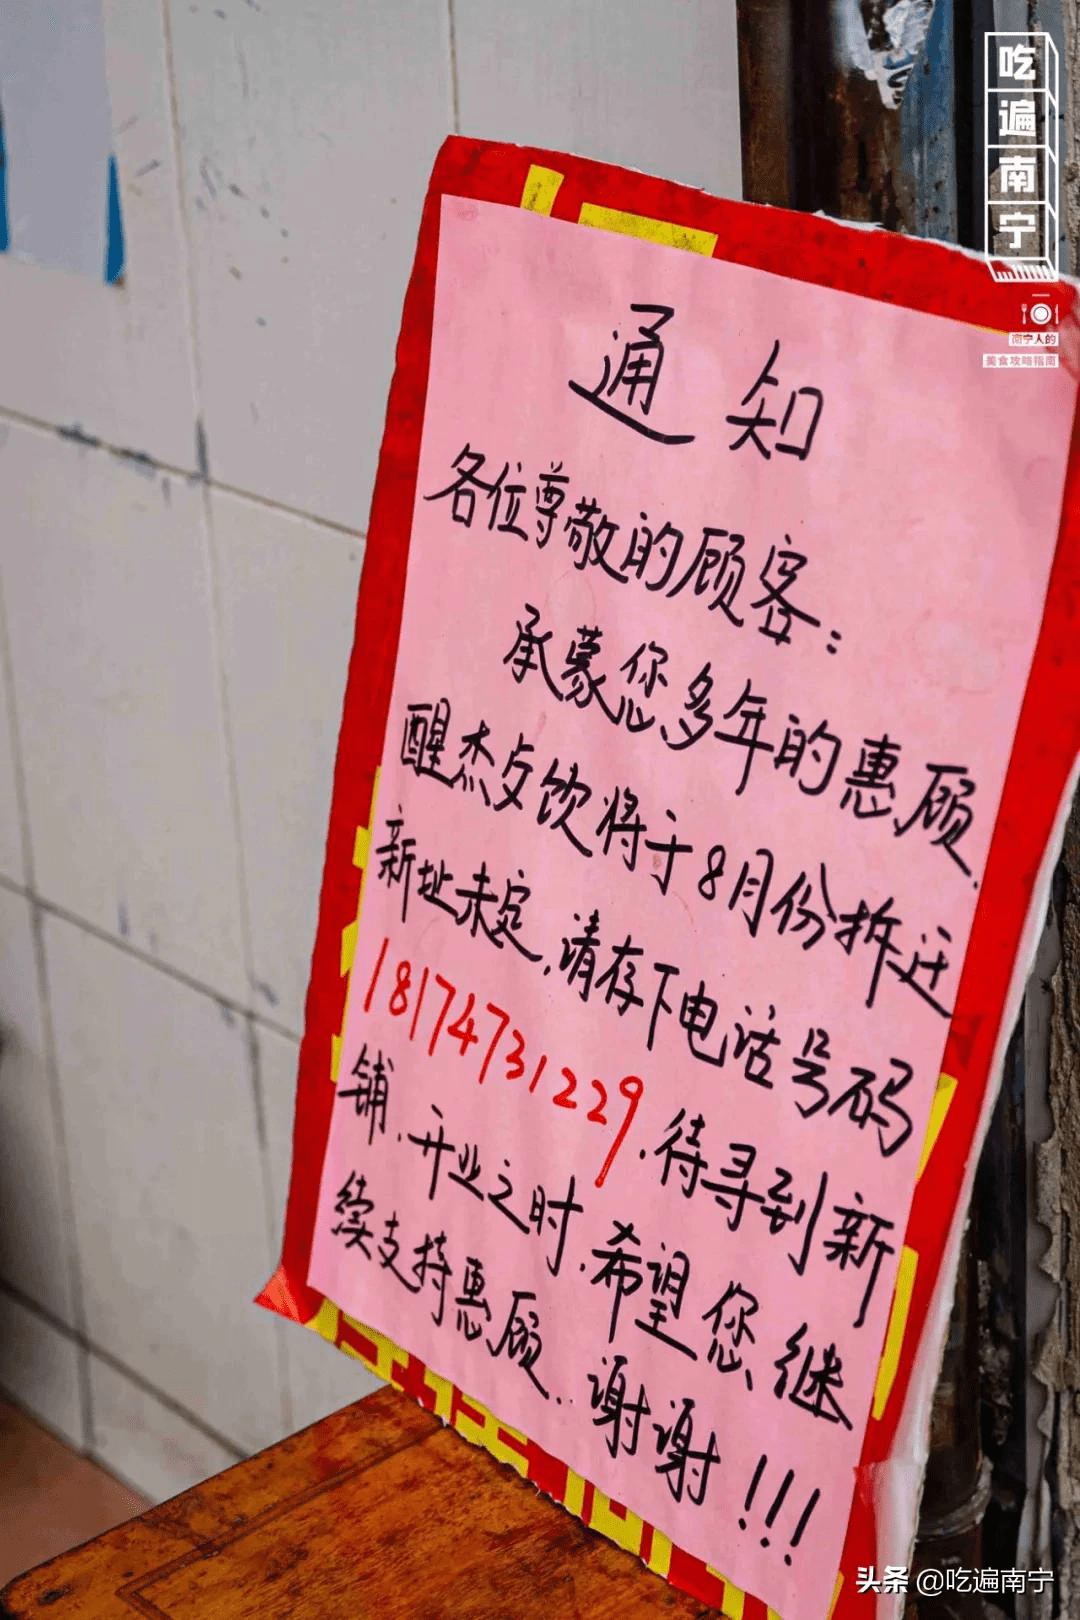 吃遍南宁
南宁人的
美食攻略指南
通知
各位尊敬的顾客:
承蒙您多年的惠顾.
醒杰占饮将于8月份拆迁
新址未定,请存下电话号码
18174731229.待寻到新
铺.开业之时.希望您继
续支持惠顾..谢谢!!!
头条 @吃遍南宁